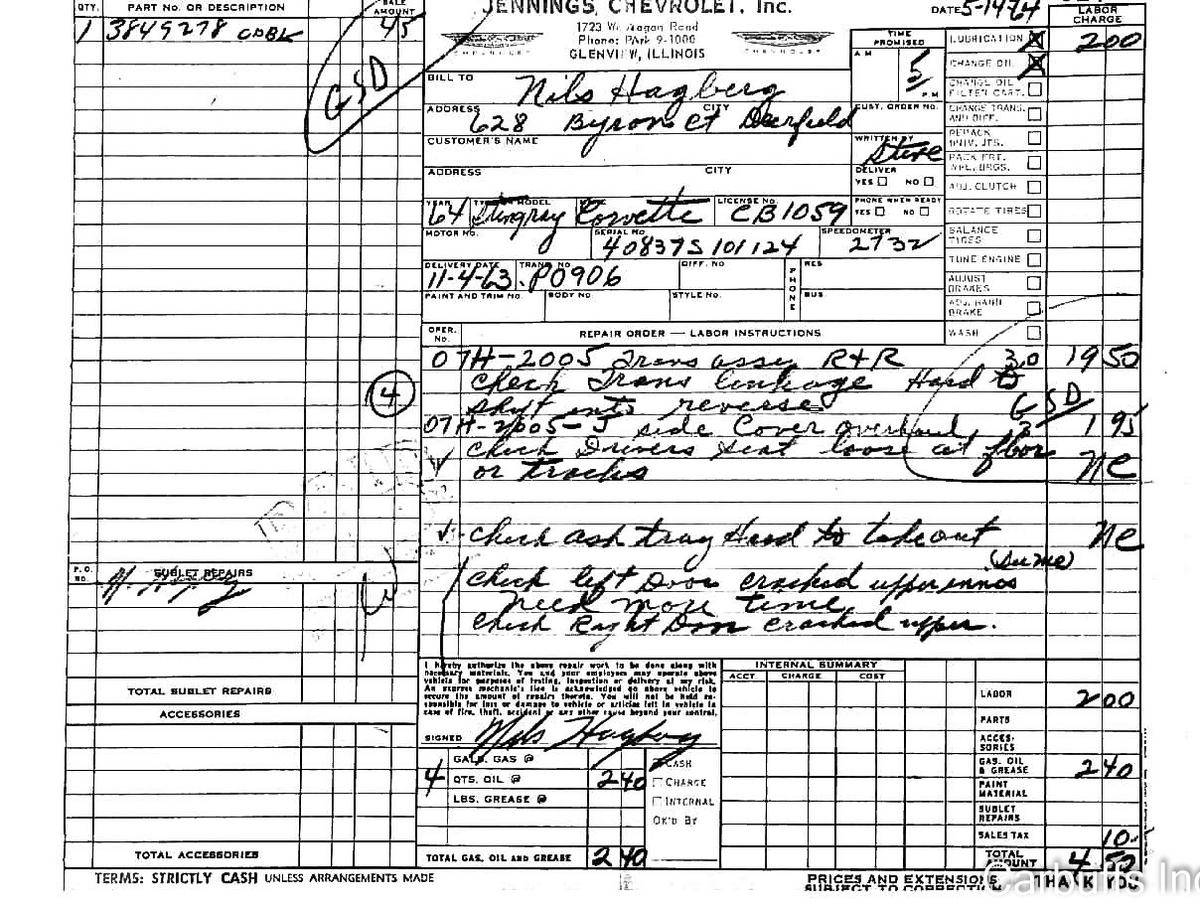 QTY. PART NO. OR DESCRIPTION SALE AMOUNT
1 3849278 45
GSD
JENNINGS CHEVROLET, Inc.
1723 Waukegan Road
Phone: PArk 9-1000
GLENVIEW, ILLINOIS
DATE 5-1464
TIME PROMISED
A M 5 P M
BILL TO Nils Hagberg
ADDRESS 628 Byron Ct CITY Deerfield
CUST. ORDER NO.
CUSTOMER'S NAME
WRITTEN BY Steve
ADDRESS CITY
DELIVER
YES NO
YEAR 64 TYPE OR MODEL Stingray MAKE Corvette LICENSE NO. CB1059
PHONE WHEN READY
YES NO
MOTOR NO. SERIAL NO. 40837S101124 SPEEDOMETER 2732
DELIVERY DATE 11-4-63 TRANS NO. P0906 DIFF. NO. PHONE RES
BUS
PAINT AND TRIM NO. BODY NO STYLE NO.
LABOR CHARGE
LUBRICATION X 200
CHANGE OIL X
CHANGE OIL FILTER CART.
CHANGE TRANS. AND DIFF.
REPACK UNIV. JTS.
PACK FRT. WHL. BRGS.
ADJ. CLUTCH
ROTATE TIRES
BALANCE TIRES
TUNE ENGINE
ADJUST BRAKES
ADJ. HAND BRAKE
WASH
OPER. NO. REPAIR ORDER — LABOR INSTRUCTIONS
07H-2005 Trans assy R+R 3.0 1950
Check Trans linkage Hard to
4 shift into reverse GSD
07H-2005-J side Cover overhaul .3 195
Check Drivers Seat loose at floor
or tracks NC
Check ash tray Hard to takeout NC
Check left Door cracked upper
need more time
Check Right Door cracked upper.
P.O. NO. SUBLET REPAIRS
TOTAL SUBLET REPAIRS
ACCESSORIES
TOTAL ACCESSORIES
I hereby authorize the above repair work to be done along with
necessary materials. You and your employees may operate above
vehicle for purposes of testing, inspection or delivery at my risk.
An express mechanic's lien is acknowledged on above vehicle to
secure the amount of repairs thereto. You will not be held re-
sponsible for loss or damage to vehicle or articles left in vehicle in
case of fire, theft, accident or any other cause beyond your control.
SIGNED Nils Hagberg
GALS. GAS @
4 QTS. OIL @ 240
LBS. GREASE @
TOTAL GAS, OIL AND GREASE 240
CASH
CHARGE
INTERNAL
OK'D BY
INTERNAL SUMMARY
ACCT. CHARGE COST
LABOR 200
PARTS
ACCESSORIES
GAS, OIL & GREASE 240
PAINT MATERIAL
SUBLET REPAIRS
SALES TAX 10
TOTAL AMOUNT 4.50
TERMS: STRICTLY CASH UNLESS ARRANGEMENTS MADE
PRICES AND EXTENSIONS
SUBJECT TO CORRECTION
THANK YOU
Carbuffs Inc